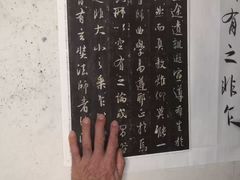 有之非乍
途遺訓遐宣導群生於
然而真教難仰莫能一
歸曲學易遵邪正於焉
所以空有之論或習
大小之乘乍
有玄奘法師者